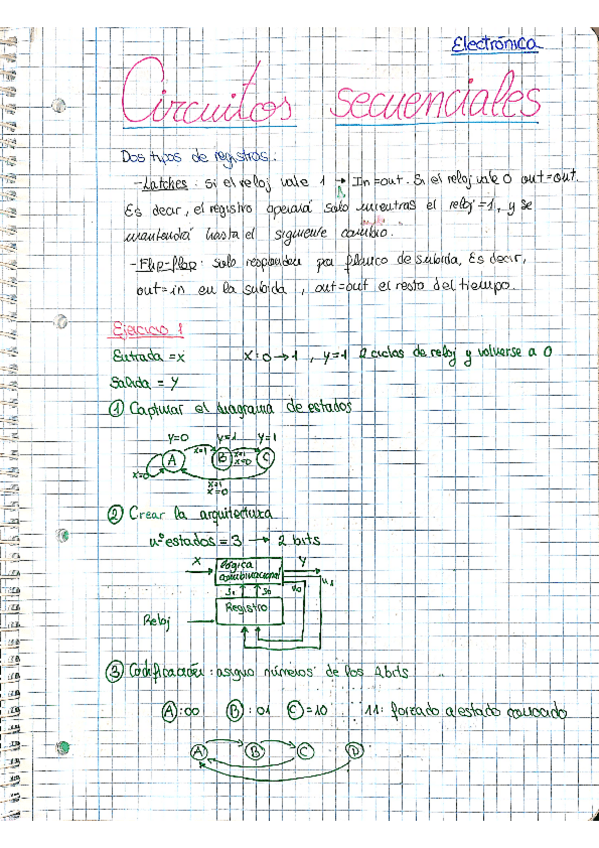 Electrónica
Circuitos secuenciales
Dos tipos de registros:
-Latches: si el reloj vale 1 → In=out. Si el reloj vale 0 out=out.
Es decir, el registro operará solo mientras el reloj=1, y se
mantendrá hasta el siguiente cambio.
-Flip-flop: solo responden por flanco de subida, Es decir,
out=in en la subida, out=out el resto del tiempo.
Ejercicio 1
Entrada = x
x:0→1, y=1 2 ciclos de reloj y volverse a 0
Salida = y
① Capturar el diagrama de estados
y=0 y=1 y=1
A x=1 B x=1 x=0 C
x=0
x=1
x=0
② Crear la arquitectura
nº estados = 3 → 2 bits
X lógica combinacional Y
s1 s0 n0 n1
Registro
Reloj
③ Codificación: asigno números de los 2bits
A:00 B:01 C=10 11: forzado a estado conocido
A B C D